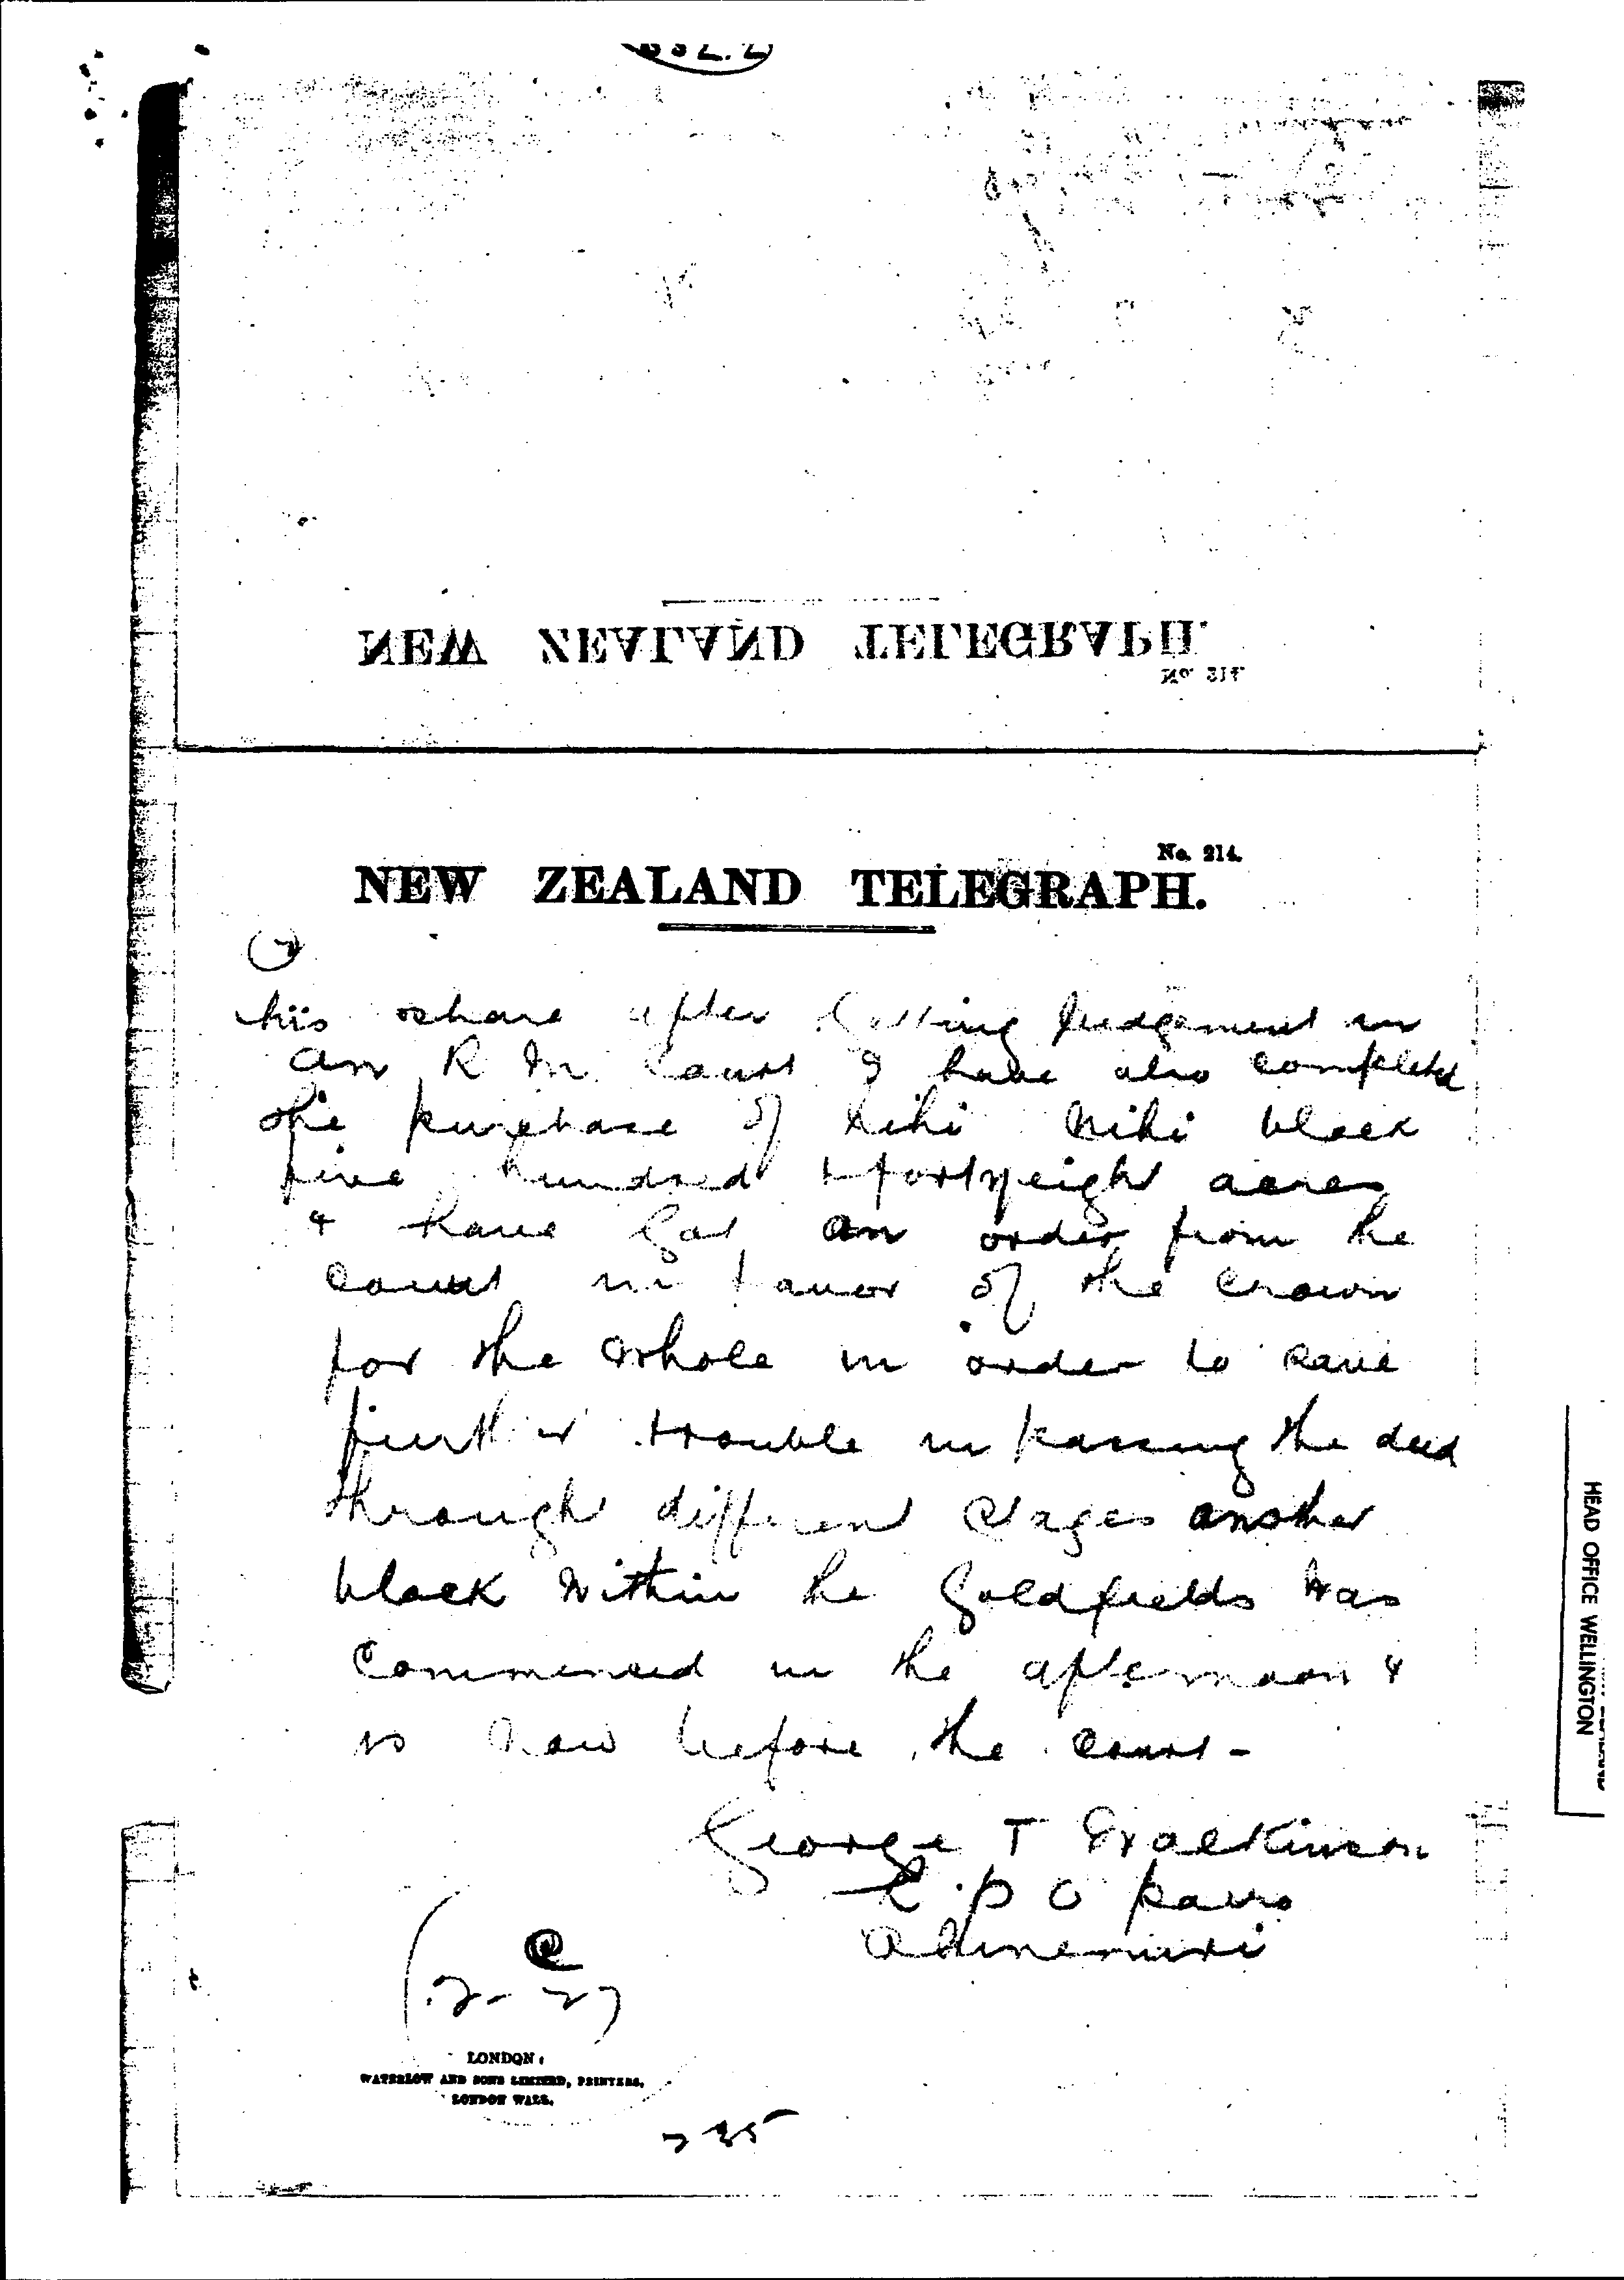 NEW ZEALAND TELEGRAPH.
No. 214.
No. 214.
NEW ZEALAND TELEGRAPH.
his share after getting Judgement in
an R M Court I have also completed
the purchase of block
five hundred & fortyeight acres
& have got an order from the
court in favor of the Crown
for the whole in order to save
further trouble in passing the deed
through different stages another
block within the Goldfields was
commenced in the afternoon &
is now before the court -
George T Wilkinson
L P O
Ohinemuri
LONDON:
WATERLOW AND SONS LIMITED, PRINTERS,
LONDON WALL.
HEAD OFFICE WELLINGTON